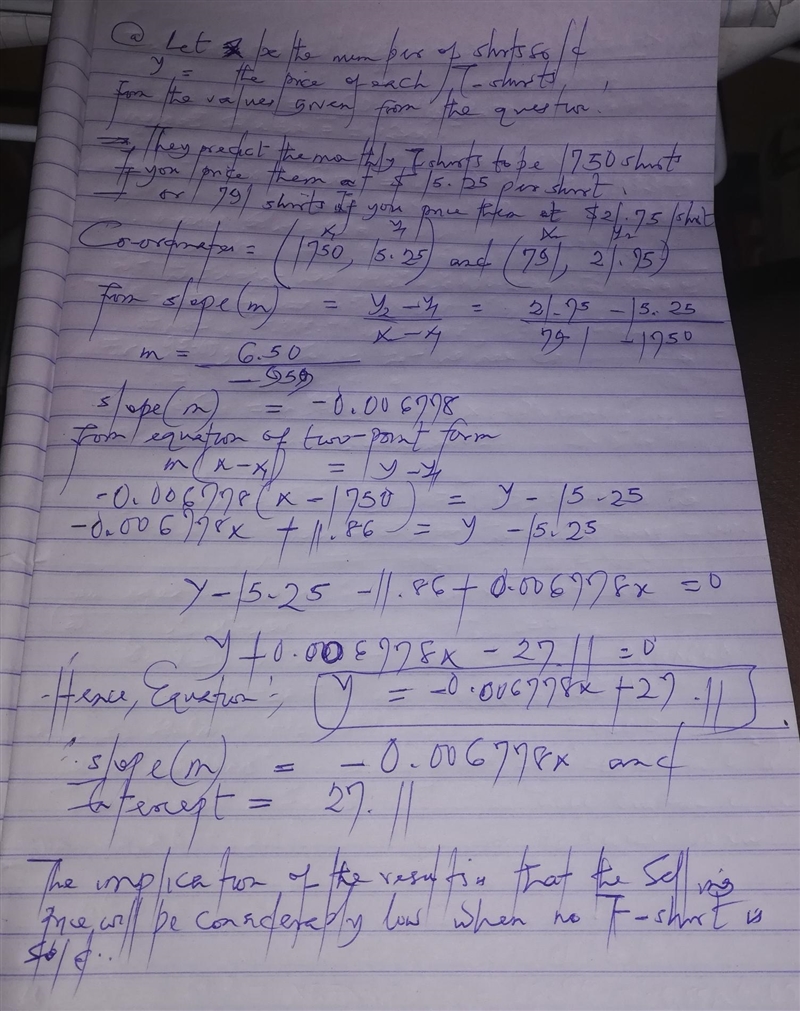 (a) Let x be the number of shirts sold
y = the price of each T-shirts,
from the values given from the question.
→ They predict the monthly T shirts to be 1750 shirts
If you price them at $15.25 per shirt.
→ or 791 shirts if you price them at $21.75/shirt
x₁ y₁ x₂ y₂
Co-ordinates = (1750, 15.25) and (791, 21.75)
from slope(m) = y₂ - y₁ / x - x₁ = 21.75 - 15.25 / 791 - 1750
m = 6.50 / -959
slope(m) = -0.006778
from equation of two-point form
m(x - x₁) = y - y₁
-0.006778(x - 1750) = y - 15.25
-0.006778x + 11.86 = y - 15.25
y - 15.25 - 11.86 + 0.006778x = 0
y + 0.006778x - 27.11 = 0
Hence, Equation; y = -0.006778x + 27.11
∴ slope(m) = -0.006778x and
Intercept = 27.11
The implication of the result is that the Selling
Price will be considerably low when no T-shirt is
sold..